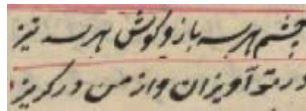 چشم هر سه باز و گوش هر سه تیز
در تو آویزان و از من در گریز